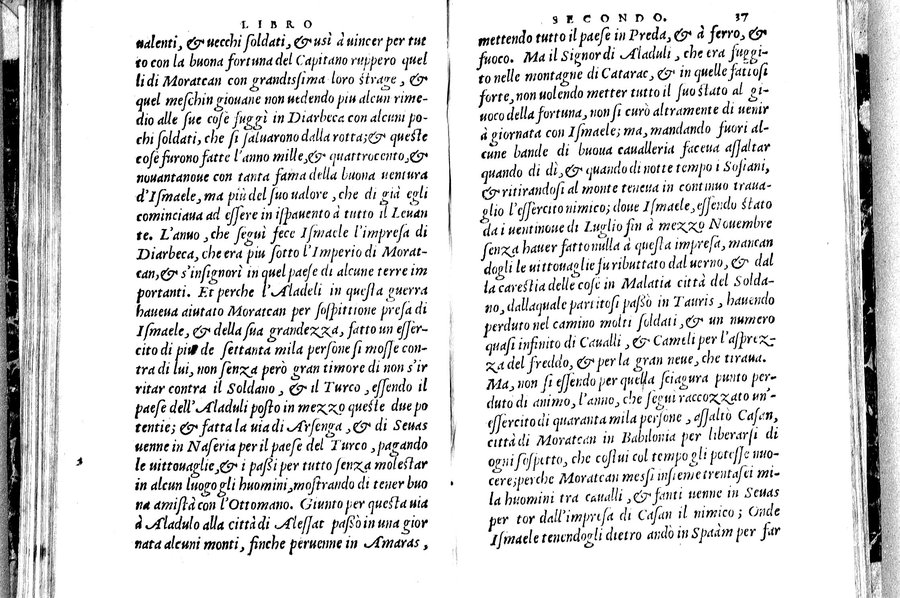 LIBRO
ualenti, & uecchi soldati, & usi à uincer per tut
to con la buona fortuna del Capitano ruppero quel
li di Moratcan con grandissima loro strage, &
quel meschin giouane non uedendo piu alcun rime-
dio alle sue cose fuggi in Diarbeca con alcuni po-
chi soldati, che si saluarono dalla rotta; & queste
cose furono fatte l'anno mille, & quattrocento, &
nouantanoue con tanta fama della buona uentura
d'Ismaele, ma più del suo ualore, che di già egli
cominciaua ad essere in ispauento à tutto il Leuan
te. L'anno, che seguì fece Ismaele l'impresa di
Diarbeca, che era piu sotto l'Imperio di Morat-
can, & s'insignorì in quel paese di alcune terre im
portanti. Et perche l'Aladeli in questa guerra
haueua aiutato Moratcan per sospittione presa di
Ismaele, & della sua grandezza, fatto un esser-
cito di piu de settanta mila persone si mosse con-
tra di lui, non senza però gran timore di non s'ir
ritar contra il Soldano, & il Turco, essendo il
paese dell'Aladuli posto in mezzo queste due po
tentie; & fatta la uia di Arsenga, & di Seuas
uenne in Naseria per il paese del Turco, pagando
le uittouaglie, & i passi per tutto senza molestar
in alcun luogo gli huomini, mostrando di tener buo
na amistà con l'Ottomano. Giunto per questa uia
à Aladulo alla città di Alessat passò in una gior
nata alcuni monti, finche peruenne in Amaras,
SECONDO. 37
mettendo tutto il paese in Preda, & à ferro, &
fuoco. Ma il Signor di Aladuli, che era fuggi-
to nelle montagne di Catarac, & in quelle fattosi
forte, non uolendo metter tutto il suo stato al gi-
uoco della fortuna, non si curò altramente di uenir
à giornata con Ismaele; ma, mandando fuori al-
cune bande di buona caualleria faceua assaltar
quando di dì, & quando di notte tempo i Sofiani,
& ritirandosi al monte teneua in continuo traua-
glio l'essercito nimico; doue Ismaele, essendo stato
da i uentinoue di Luglio fin à mezzo Nouembre
senza hauer fatto nulla à questa impresa, mancan
dogli le uittouaglie fu ributtato dal uerno, & dal
la carestia delle cose in Malatia città del Solda-
no, dallaquale partitosi passò in Tauris, hauendo
perduto nel camino molti soldati, & un numero
quasi infinito di Caualli, & Cameli per l'asprez-
za del freddo, & per la gran neue, che tiraua.
Ma, non si essendo per quella sciagura punto per-
duto di animo, l'anno, che seguì raccozzato un'-
essercito di quaranta mila persone, assaltò Casan,
città di Moratcan in Babilonia per liberarsi di
ogni sospetto, che costui col tempo gli potesse nuo-
cere; perche Moratcan messi insieme trentasei mi-
la huomini tra caualli, & fanti uenne in Seuas
per tor dall'impresa di Casan il nimico; Onde
Ismaele tenendogli dietro andò in Spaàm per far